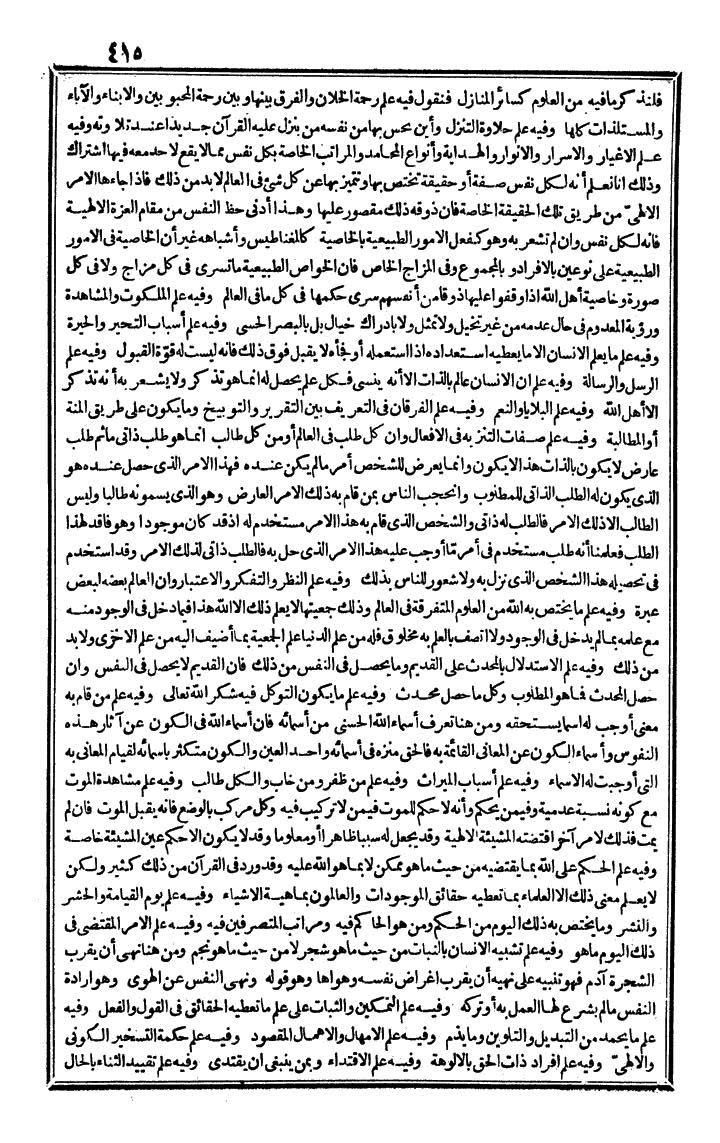 ٤١٥
فلنذكر مافيه من العلوم كسائر المنازل فنقول فيه علم رحمة الخلان والفرق بينها وبين رحمة المحبوبين والابناء والآباء
والمستلذات كلها وفيه علم حلاوة التنزل وأين يحس بها من نفسه من ينزل عليه القرآن جديدا عند تلاوته وفيه
علم الاغيار والاسرار والانوار والهداية وأنواع المحامد والمراتب الخاصة بكل نفس مما لا يقع لاحد معه فيها اشتراك
وذلك انا نعلم أنه لكل نفس صفة أو حقيقة تختص بها وتتميز بها عن كل شئ فى العالم لا بد من ذلك فاذا جاءها الامر
الالهىّ من طريق تلك الحقيقة الخاصة فان ذوقه ذلك مقصور عليها وهذا أدنى حظ النفس من مقام العزة الالهية
فانه لكل نفس وان لم تشعر به وهو كفعل الامور الطبيعية بالخاصية كالمغناطيس وأشباهه غير أن الخاصية فى الامور
الطبيعية على نوعين بالافراد وبالمجموع وفى المزاج الخاص فان الخواص الطبيعية ما تسرى فى كل مزاج ولا فى كل
صورة وخاصية أهل الله اذا وقفوا عليها ذوقا من أنفسهم سرى حكمها فى كل ما فى العالم وفيه علم الملكوت والمشاهدة
ورؤية المعدوم فى حال عدمه من غير تخيل ولا تمثل ولا بادراك خيال بل بالبصر الحسى وفيه علم أسباب التحير والحيرة
وفيه علم ما يعلم الانسان الا ما يعطيه استعداده اذا استعمله أو فجأه لا يقبل فوق ذلك فانه ليست له قوّة القبول وفيه علم
الرسل والرسالة وفيه علم ان الانسان عالم بالذات الا أنه ينسى فكل علم يحصل له انما هو تذكر ولا يشعر به أنه تذكر
الا أهل الله وفيه علم البلايا والنعم وفيه علم الفرقان فى التعريف بين التقرير والتوبيخ وما يكون على طريق المنة
أو المطالبة وفيه علم صفات التنزيه فى الافعال وان كل طلب فى العالم أو من كل طالب انما هو طلب ذاتى ما ثم طلب
عارض لا يكون بالذات هذا لا يكون وانما يعرض للشخص أمر ما لم يكن عنده فهذا الامر الذى حصل عنده هو
الذى يكون له الطلب الذاتى للمطلوب وانحجب الناس بمن قام به ذلك الامر العارض وهو الذى يسمونه طالبا وليس
الطالب الا ذلك الامر فالطلب له ذاتى والشخص الذى قام به هذا الامر مستخدم له اذ قد كان موجودا وهو فاقد لهذا
الطلب فعلمنا أنه طلب مستخدم فى أمر مّا أوجب عليه هذا الامر الذى حل به فالطلب ذاتى لذلك الامر وقد استخدم
فى تحصيله هذا الشخص الذى نزل به ولا شعور للناس بذلك وفيه علم النظر والتفكر والاعتبار وان العالم بعضه لبعض
عبرة وفيه علم ما يختص به الله من العلوم المتفرقة فى العالم وذلك جعيتها لا يعلم ذلك الا الله هذا فيما دخل فى الوجود منه
مع علمه بما لم يدخل فى الوجود ولا اتصف بالعلم به مخلوق فله من علم الدنيا علم الجعية بما أضيف اليه من علم الاخرى ولا بد
من ذلك وفيه علم الاستدلال بالمحدث على القديم وما يحصل فى النفس من ذلك فان القديم لا يحصل فى النفس وان
حصل المحدث فما هو المطلوب وكل ما حصل محدث وفيه علم ما يكون التوكل فيه شكر الله تعالى وفيه علم من قام به
معنى أوجب له اسما يستحقه ومن هنا تعرف أسماء الله الحسنى من أسمائه فان أسماء الله فى الكون عن آثار هذه
النفوس وأسماء الكون عن المعانى القائمة به فالحق منزه فى أسمائه واحد العين والكون متكثر باسمائه لقيام المعانى به
التى أوجبت له الاسماء وفيه علم أسباب الميراث وفيه علم من ظفر ومن خاب والكل طالب وفيه علم مشاهدة الموت
مع كونه نسبة عدمية وفيمن يحكم وأنه لا حكم للموت فيمن لا تركيب فيه وكل مركب بالوضع فانه يقبل الموت فان لم
يمت فذلك لامر آخر اقتضته المشيئة الالهية وقد يجعل له سببا ظاهرا أو معلوما وقد لا يكون الا حكم عين المشيئة خاصة
وفيه علم الحكم على الله بما يقتضيه من حيث ما هو ممكن لا بما هو الله عليه وقد ورد فى القرآن من ذلك كثير ولكن
لا يعلم معنى ذلك الا العلماء بما تعطيه حقائق الموجودات والعالمون بماهية الاشياء وفيه علم يوم القيامة والحشر
والنشر وما يختص به ذلك اليوم من الحكم ومن هو الحاكم فيه ومراتب المتصرفين فيه وفيه علم الامر المقتضى فى
ذلك اليوم ما هو وفيه علم تشبيه الانسان بالنبات من حيث ما هو شجر لا من حيث ما هو نجم ومن هنا نهى أن يقرب
الشجرة آدم فهو تنبيه على نهيه أن يقرب اغراض نفسه وهواها وهو قوله ونهى النفس عن الهوى وهو ارادة
النفس ما لم يشرع لها العمل به أو تركه وفيه علم التمكين والثبات على علم ما تعطيه الحقائق فى القول والفعل وفيه
علم ما يحمد من التبديل والتلوين وما يذم وفيه علم الامهال والاهمال المقصود وفيه علم حكمة التسخير الكونى
والالهىّ وفيه علم افراد ذات الحق بالالوهة وفيه علم الاقتداء وبمن ينبغى ان يقتدى وفيه علم تقييد الثناء بالحال